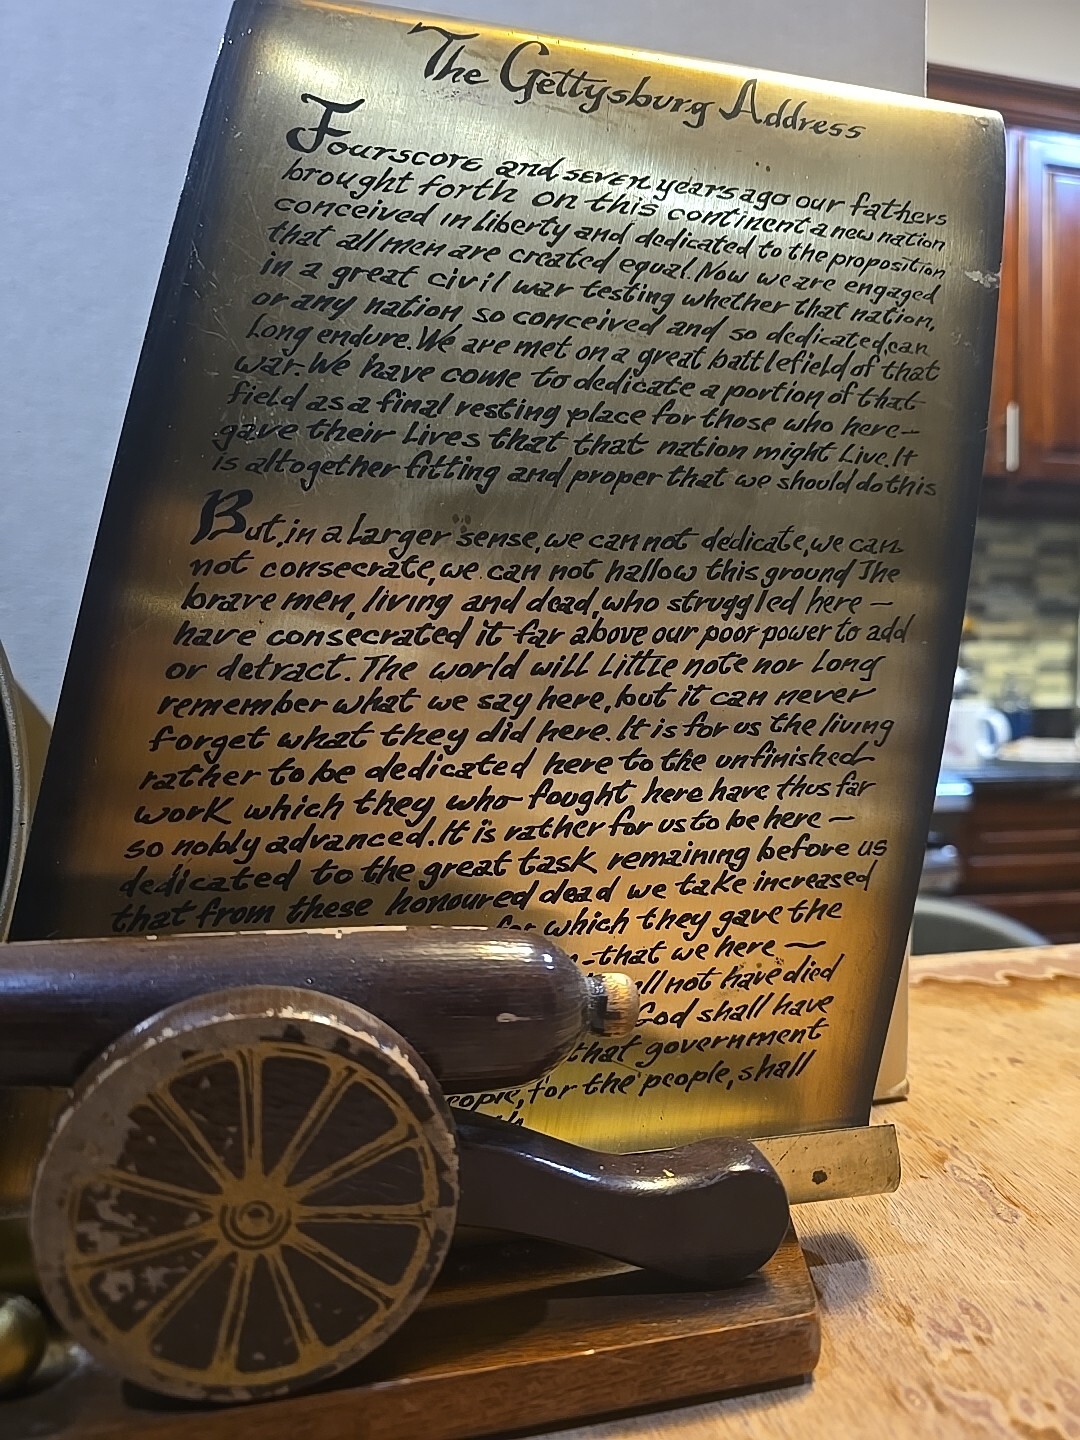 The Gettysburg Address
Fourscore and seven years ago our fathers
brought forth on this continent a new nation
conceived in Liberty and dedicated to the proposition
that all men are created equal. Now we are engaged
in a great civil war testing whether that nation,
or any nation so conceived and so dedicated, can
Long endure. We are met on a great battlefield of that
war. We have come to dedicate a portion of that
field as a final resting place for those who here—
gave their Lives that that nation might Live. It
is altogether fitting and proper that we should do this
But, in a Larger sense, we can not dedicate, we can
not consecrate, we can not hallow this ground The
brave men, living and dead, who struggled here —
have consecrated it far above our poor power to add
or detract. The world will Little note nor Long
remember what we say here, but it can never
forget what they did here. It is for us the living
rather to be dedicated here to the unfinished
work which they who fought here have thus far
so nobly advanced. It is rather for us to be here —
dedicated to the great task remaining before us
that from these honoured dead we take increased
for which they gave the
-that we here —
all not have died
God shall have
that government
eople, for the people, shall